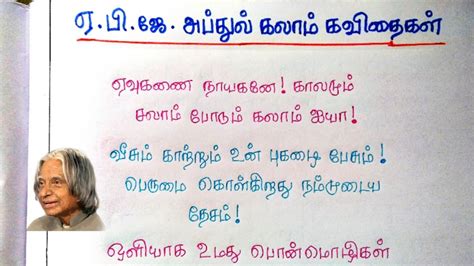 ஏ.பி.ஜே. அப்துல் கலாம் கவிதைகள்
ஏவுகணை நாயகனே! காலமும்
சலாம் போடும் கலாம் ஐயா!
வீசும் காற்றும் உன் புகழை பேசும்!
பெருமை கொள்கிறது நம்முடைய
தேசம்!
ஒளியாக உமது பொன்மொழிகள்